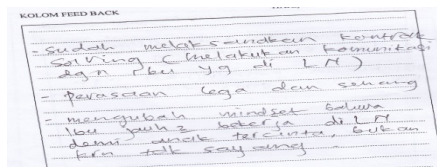 KOLOM FEED BACK
- Sudah melaksanakan kontrak
solving (melakukan komunikasi
dgn ibu yg di LN)
- perasaan lega dan senang
- mengubah mindset bahwa
Ibu jauh2 bekerja di LN
demi anak tercinta, bukan
krn tdk sayang.